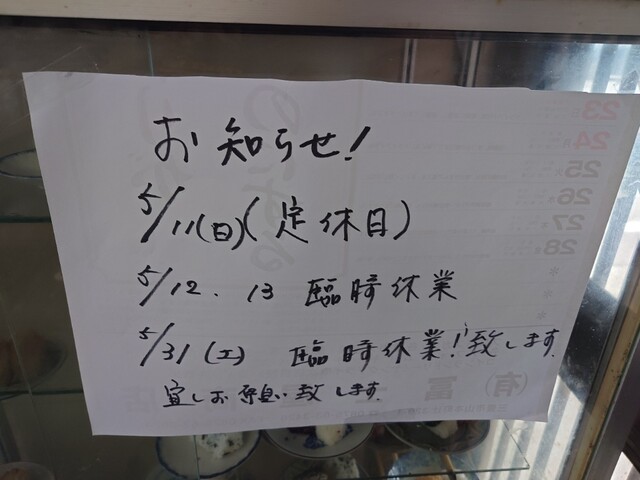 お知らせ!
5/11(日)(定休日)
5/12.13 臨時休業
5/31(土) 臨時休業!致します.
宜しお願い致します.
23
24
25
26
27
28
(有) 富